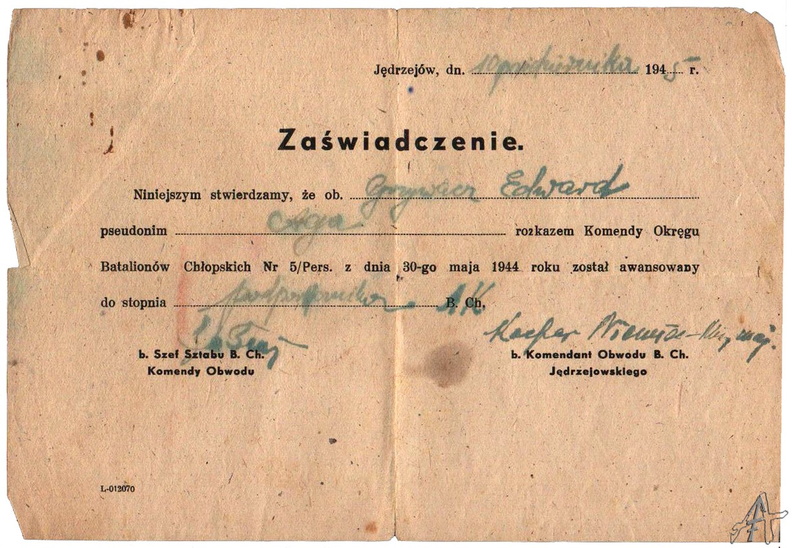 Jędrzejów, dn. 10 października 1945 r.
Zaświadczenie.
Niniejszym stwierdzamy, że ob. Grzywacz Edward
pseudonim Aga rozkazem Komendy Okręgu
Batalionów Chłopskich Nr 5/Pers. z dnia 30-go maja 1944 roku został awansowany
do stopnia podporucznika B. Ch. AK
Kacper Niemiec
b. Szef Sztabu B. Ch. b. Komendant Obwodu B. Ch.
Komendy Obwodu Jędrzejowskiego
L-012070